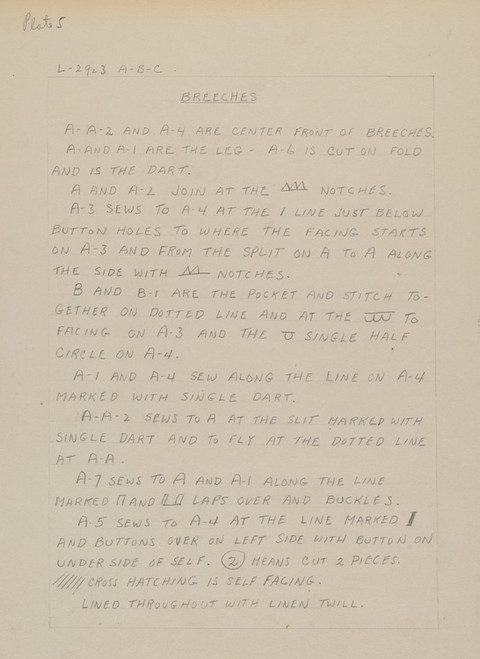 Plate 5
L-2923 A-B-C.
BREECHES
A-A-2 AND A-4 ARE CENTER FRONT OF BREECHES.
A-AND A-1 ARE THE LEG - A-6 IS CUT ON FOLD
AND IS THE DART.
A AND A-2 JOIN AT THE NOTCHES.
A-3 SEWS TO A-4 AT THE 1 LINE JUST BELOW
BUTTON HOLES TO WHERE THE FACING STARTS
ON A-3 AND FROM THE SPLIT ON A TO A ALONG
THE SIDE WITH NOTCHES.
B AND B-1 ARE THE POCKET AND STITCH TO-
GETHER ON DOTTED LINE AND AT THE TO
FACING ON A-3 AND THE SINGLE HALF
CIRCLE ON A-4.
A-1 AND A-4 SEW ALONG THE LINE ON A-4
MARKED WITH SINGLE DART.
A-A-2 SEWS TO A AT THE SLIT MARKED WITH
SINGLE DART AND TO FLY AT THE DOTTED LINE
AT A-A.
A-7 SEWS TO A AND A-1 ALONG THE LINE
MARKED AND LAPS OVER AND BUCKLES.
A-5 SEWS TO A-4 AT THE LINE MARKED
AND BUTTONS OVER ON LEFT SIDE WITH BUTTON ON
UNDER SIDE OF SELF. (2) MEANS CUT 2 PIECES.
///// CROSS HATCHING IS SELF FACING.
LINED THROUGHOUT WITH LINEN TWILL.